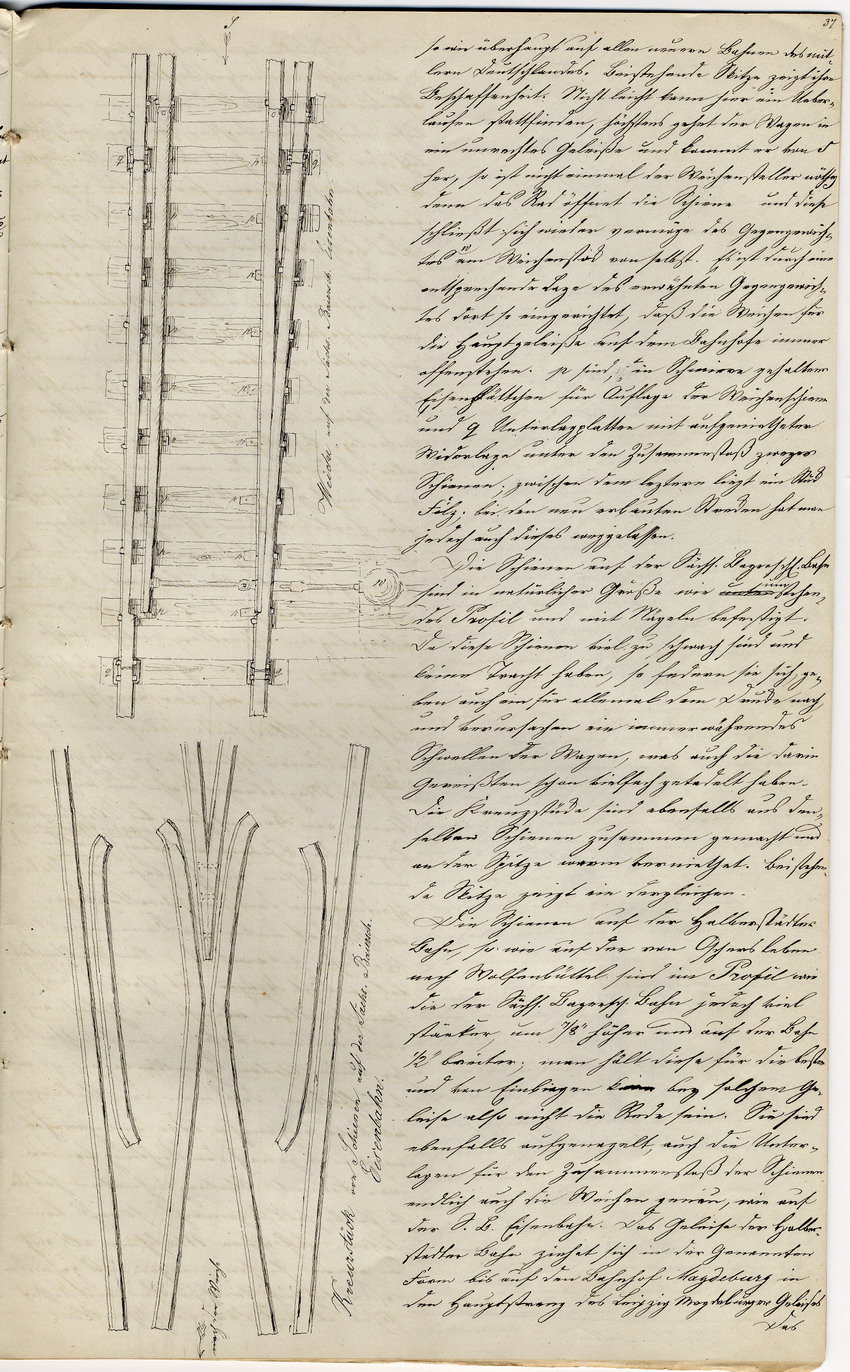 37
so wie überhaupt auf allen neuern Bahnen des mitt-
lern Deutschlandes. Beistehende Skitze zeigt ihre
Beschaffenheit. Nicht leicht kann hier ein Ueber-
laufen stattfinden, höchstens gehet der Wagen in
ein unrechtes Geleiße und kommt er von S
her, so ist nicht einmal der Weichensteller nöthig
denn das Rad öffnet die Schiene und diese
schließt sich wieder vermöge des Gegengewich-
tes am Weichenstock von selbst. Es ist durch eine
entsprechende Lage des erwähnten Gegengewich-
tes dort so eingerichtet, daß die Weichen für
die Hauptgeleiße auf dem Bahnhofe immer
offenstehen. p sind, in Schmiere gehaltene
Eisenplättchen für Auflage der Weichenschiene
und q Unterlagplatten mit aufgenietheter
Widerlage unter den Zusammenstoß zweyer
Schienen; zwischen dem leztern liegt ein Stück
Filz. bei den neu erbauten Strecken hat man
jedoch auch dieses weggelassen.
Die Schienen auf der Sächs. Bayerschl. Bahn
sind in natürlicher Größe wie stehen-
des Profil und mit Nägeln befestigt.
Da diese Schienen viel zu schwach sind und
keine Tracht haben, so federn sie sich, ge-
ben auch ein für allemal dem Drucke nach,
und verursachen ein immerwährendes
Schwellen der Wagen, was auch die darin
Gereißten schon vielfach getadelt haben.
Die Kreuzstücke sind ebenfalls aus den-
selben Schienen zusammen gemacht und
an der Spitze warm verniethet. Beistehen-
de Skitze zeigt ein dergleichen.
Die Schienen auf der Halberstädter
Bahn, so wie auf der von Oschersleben
nach Wolfenbüttel sind im Profil wie
die der Sächs. Bayersch. Bahn jedoch viel
stärker, um 7/8" höher und auf der Bahn
1/2" breiter; man hält diese für die beste
und von Einbiegen kann bey solchem Ge-
leise also nicht die Rede sein. Sie sind
ebenfalls aufgenagelt, auch die Unter-
lagen für den Zusammenstoß der Schienen
endlich auch die Weichen genau, wie auf
der S. B. Eisenbahn. Das Geleise der Halber-
städter Bahn ziehet sich in der Genannten
Form bis auf den Bahnhof Magdeburg in
den Hauptstrang des Leipzig Magdeburger Geleises
Das
S
Weiche auf der Sächs. Baiersch. Eisenbahn.
Kreuzstück von Schienen auf der Sächs. Baiersch.
Eisenbahn.
nach der Weiche